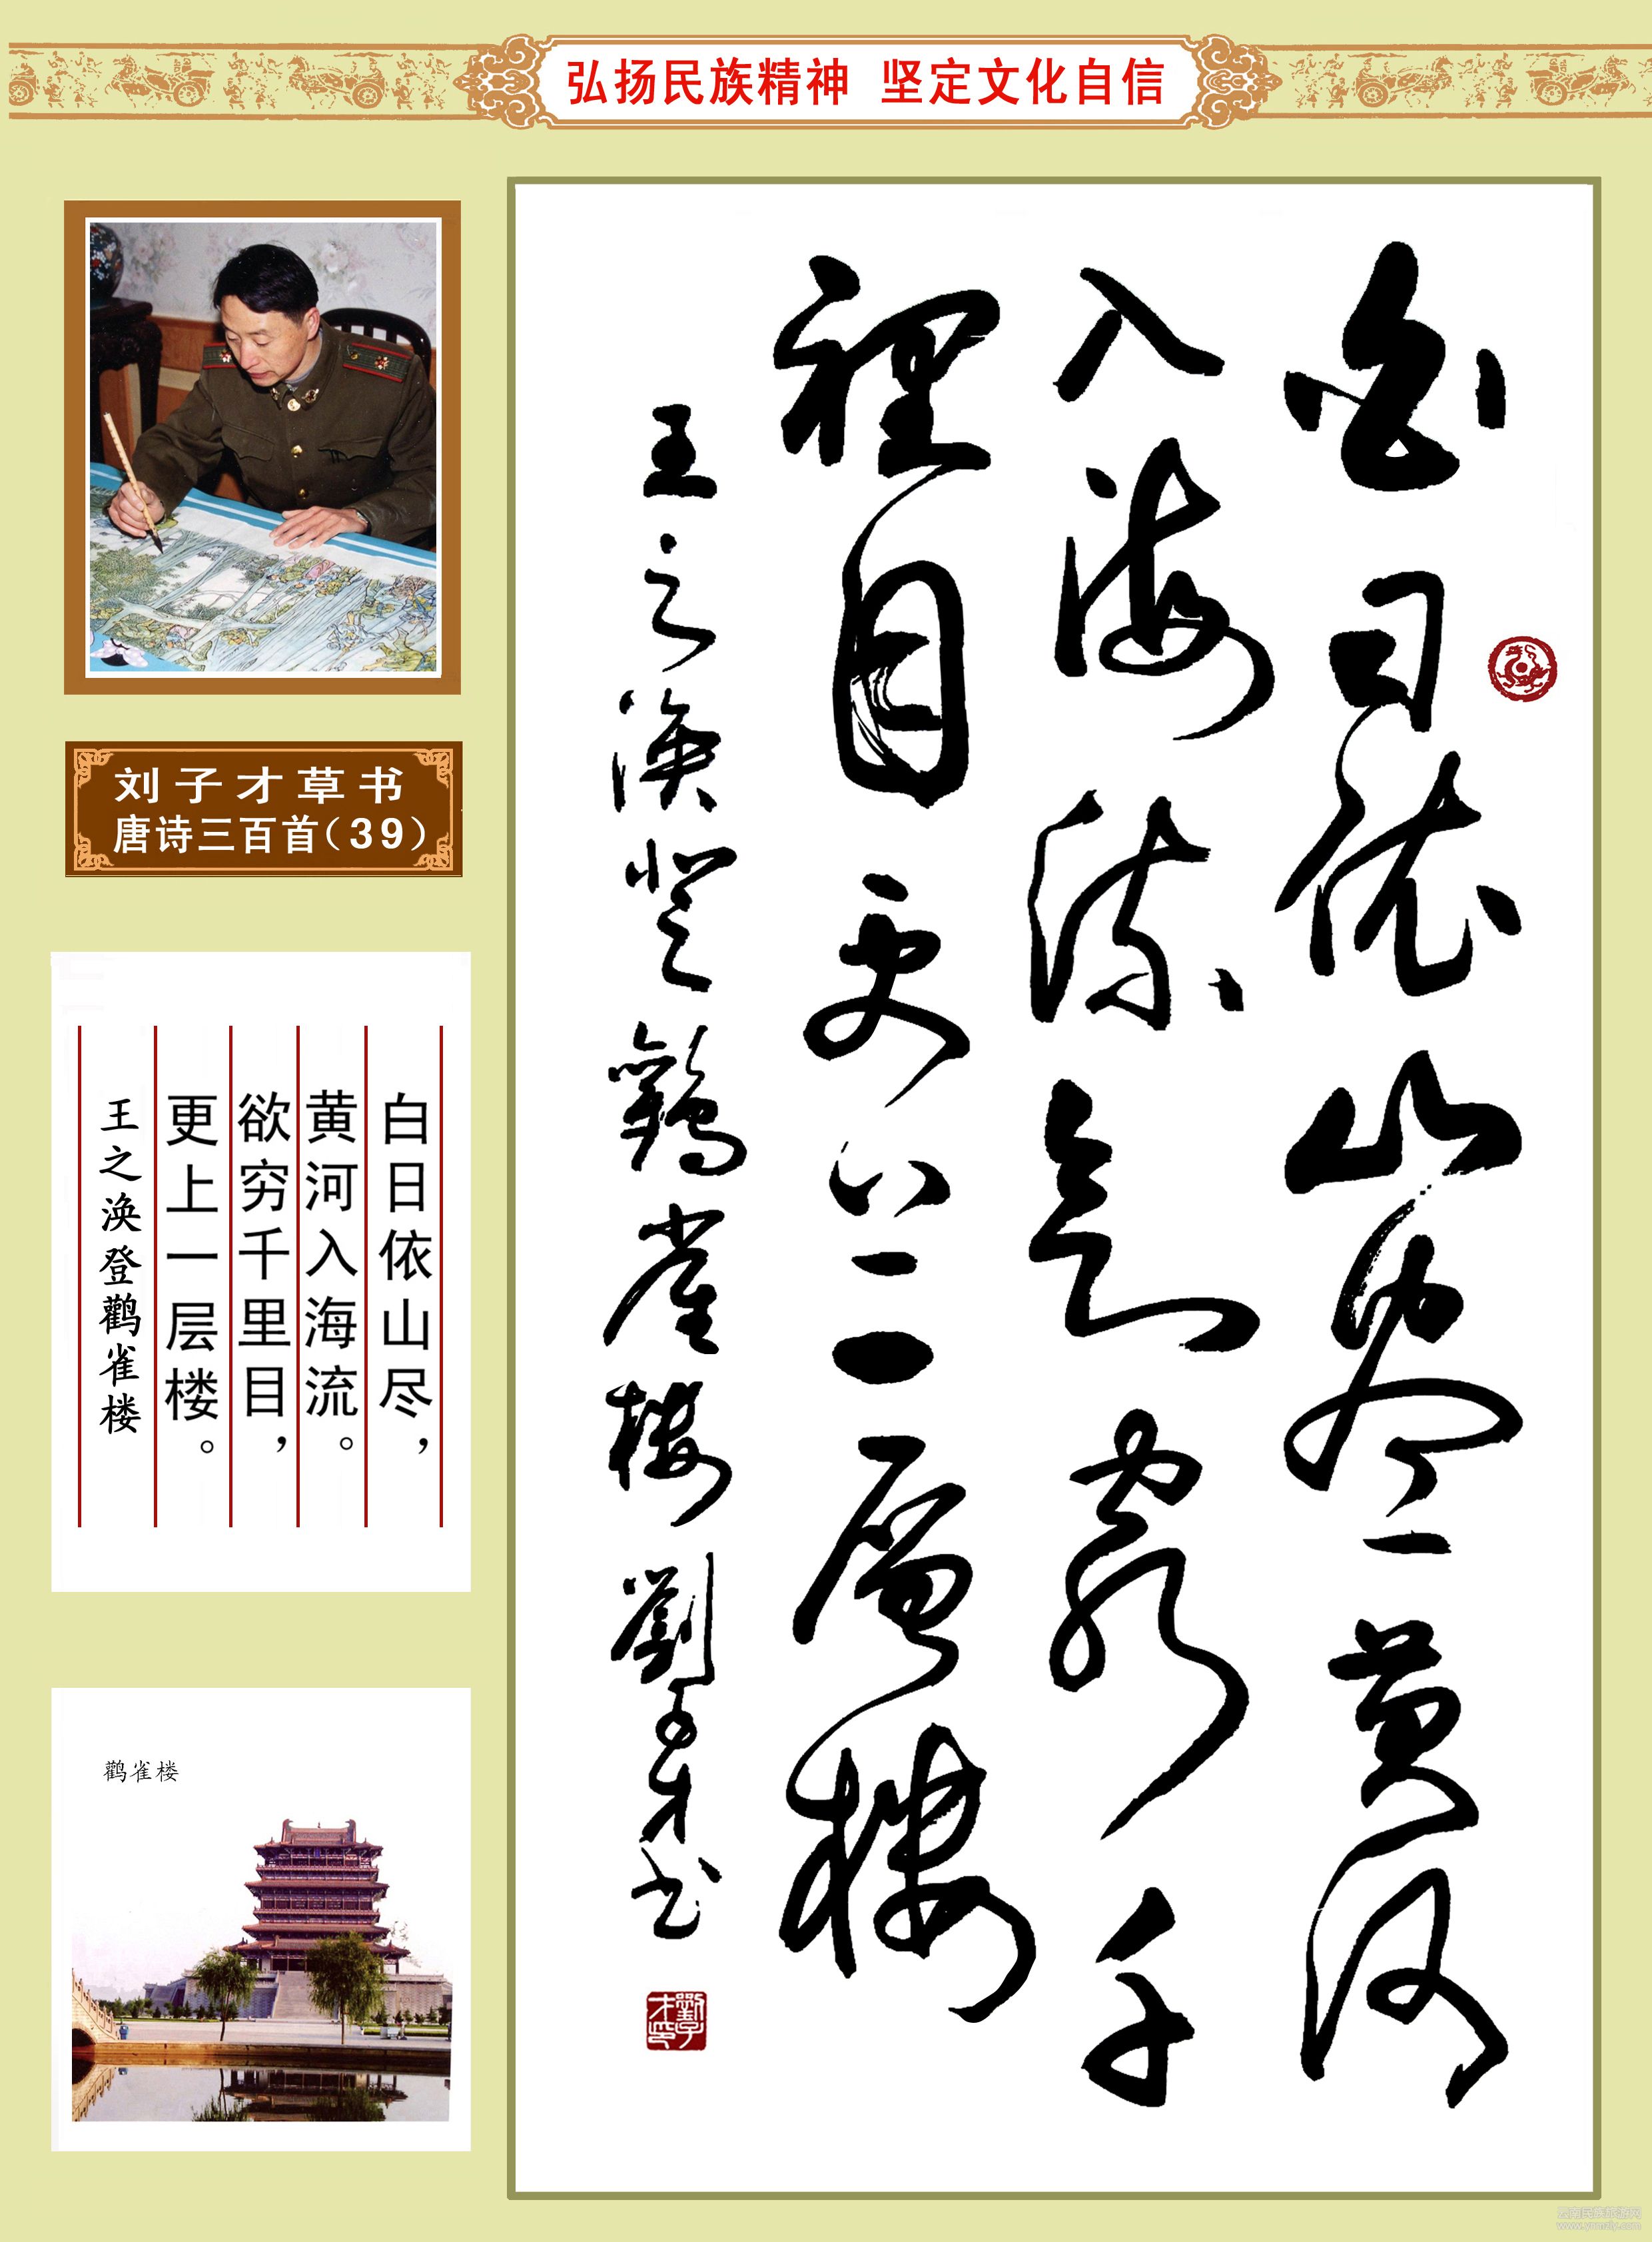 弘扬民族精神 坚定文化自信
刘子才草书
唐诗三百首（39）
白日依山尽，
黄河入海流。
欲穷千里目，
更上一层楼。
王之涣登鹳雀楼
鹳雀楼
白日依山尽黄河
入海流欲穷千
裡目更上一层楼
王之涣登鸛雀楼劉子才书
劉子才印